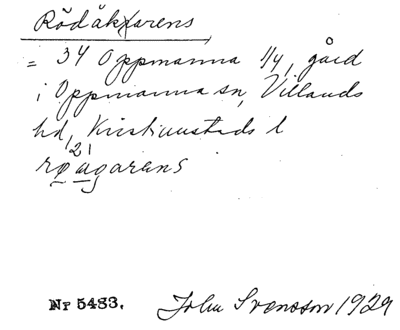 Rödåkarens
= 34 Oppmanna 1/4, gård
i Oppmanna sn, Villands
hd, Kristianstads l
2 1
Nr 5483. John Svensson 1929